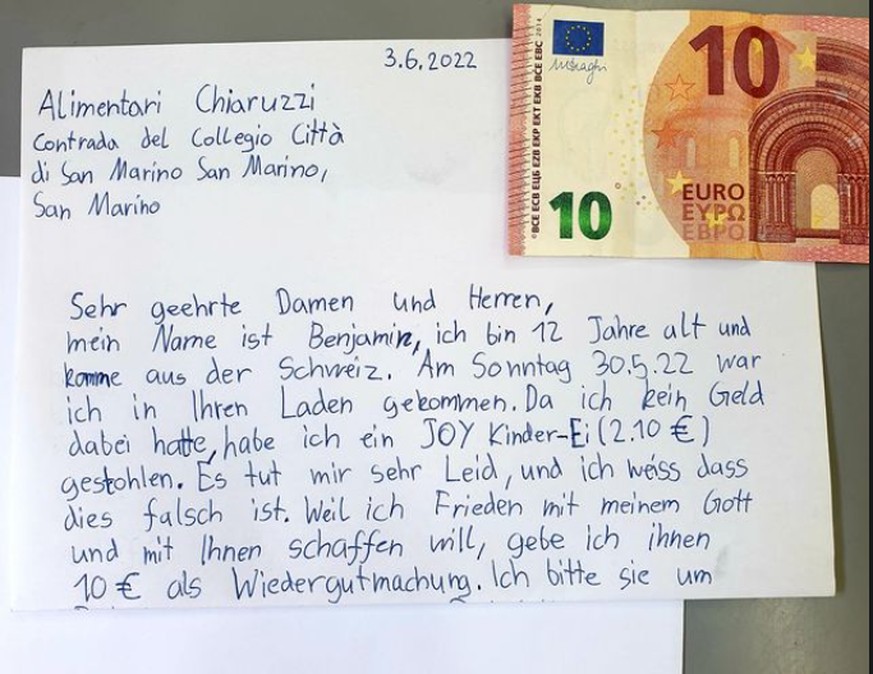 3.6.2022
Alimentari Chiaruzzi
Contrada del Collegio Città
di San Marino San Marino,
San Marino
Sehr geehrte Damen und Herren,
mein Name ist Benjamin, ich bin 12 Jahre alt und
komme aus der Schweiz. Am Sonntag 30.5.22 war
ich in Ihren Laden gekommen. Da ich kein Geld
dabei hatte, habe ich ein JOY Kinder-Ei (2.10 €)
gestohlen. Es tut mir sehr Leid, und ich weiss dass
dies falsch ist. Weil ich Frieden mit meinem Gott
und mit Ihnen schaffen will, gebe ich ihnen
10 € als Wiedergutmachung. Ich bitte sie um
10
10
EURO
ΕΥΡΩ
ЕВРО
©BCE ECB ЕЦБ EZB EKP EKT EKB BĊE EBC 2014